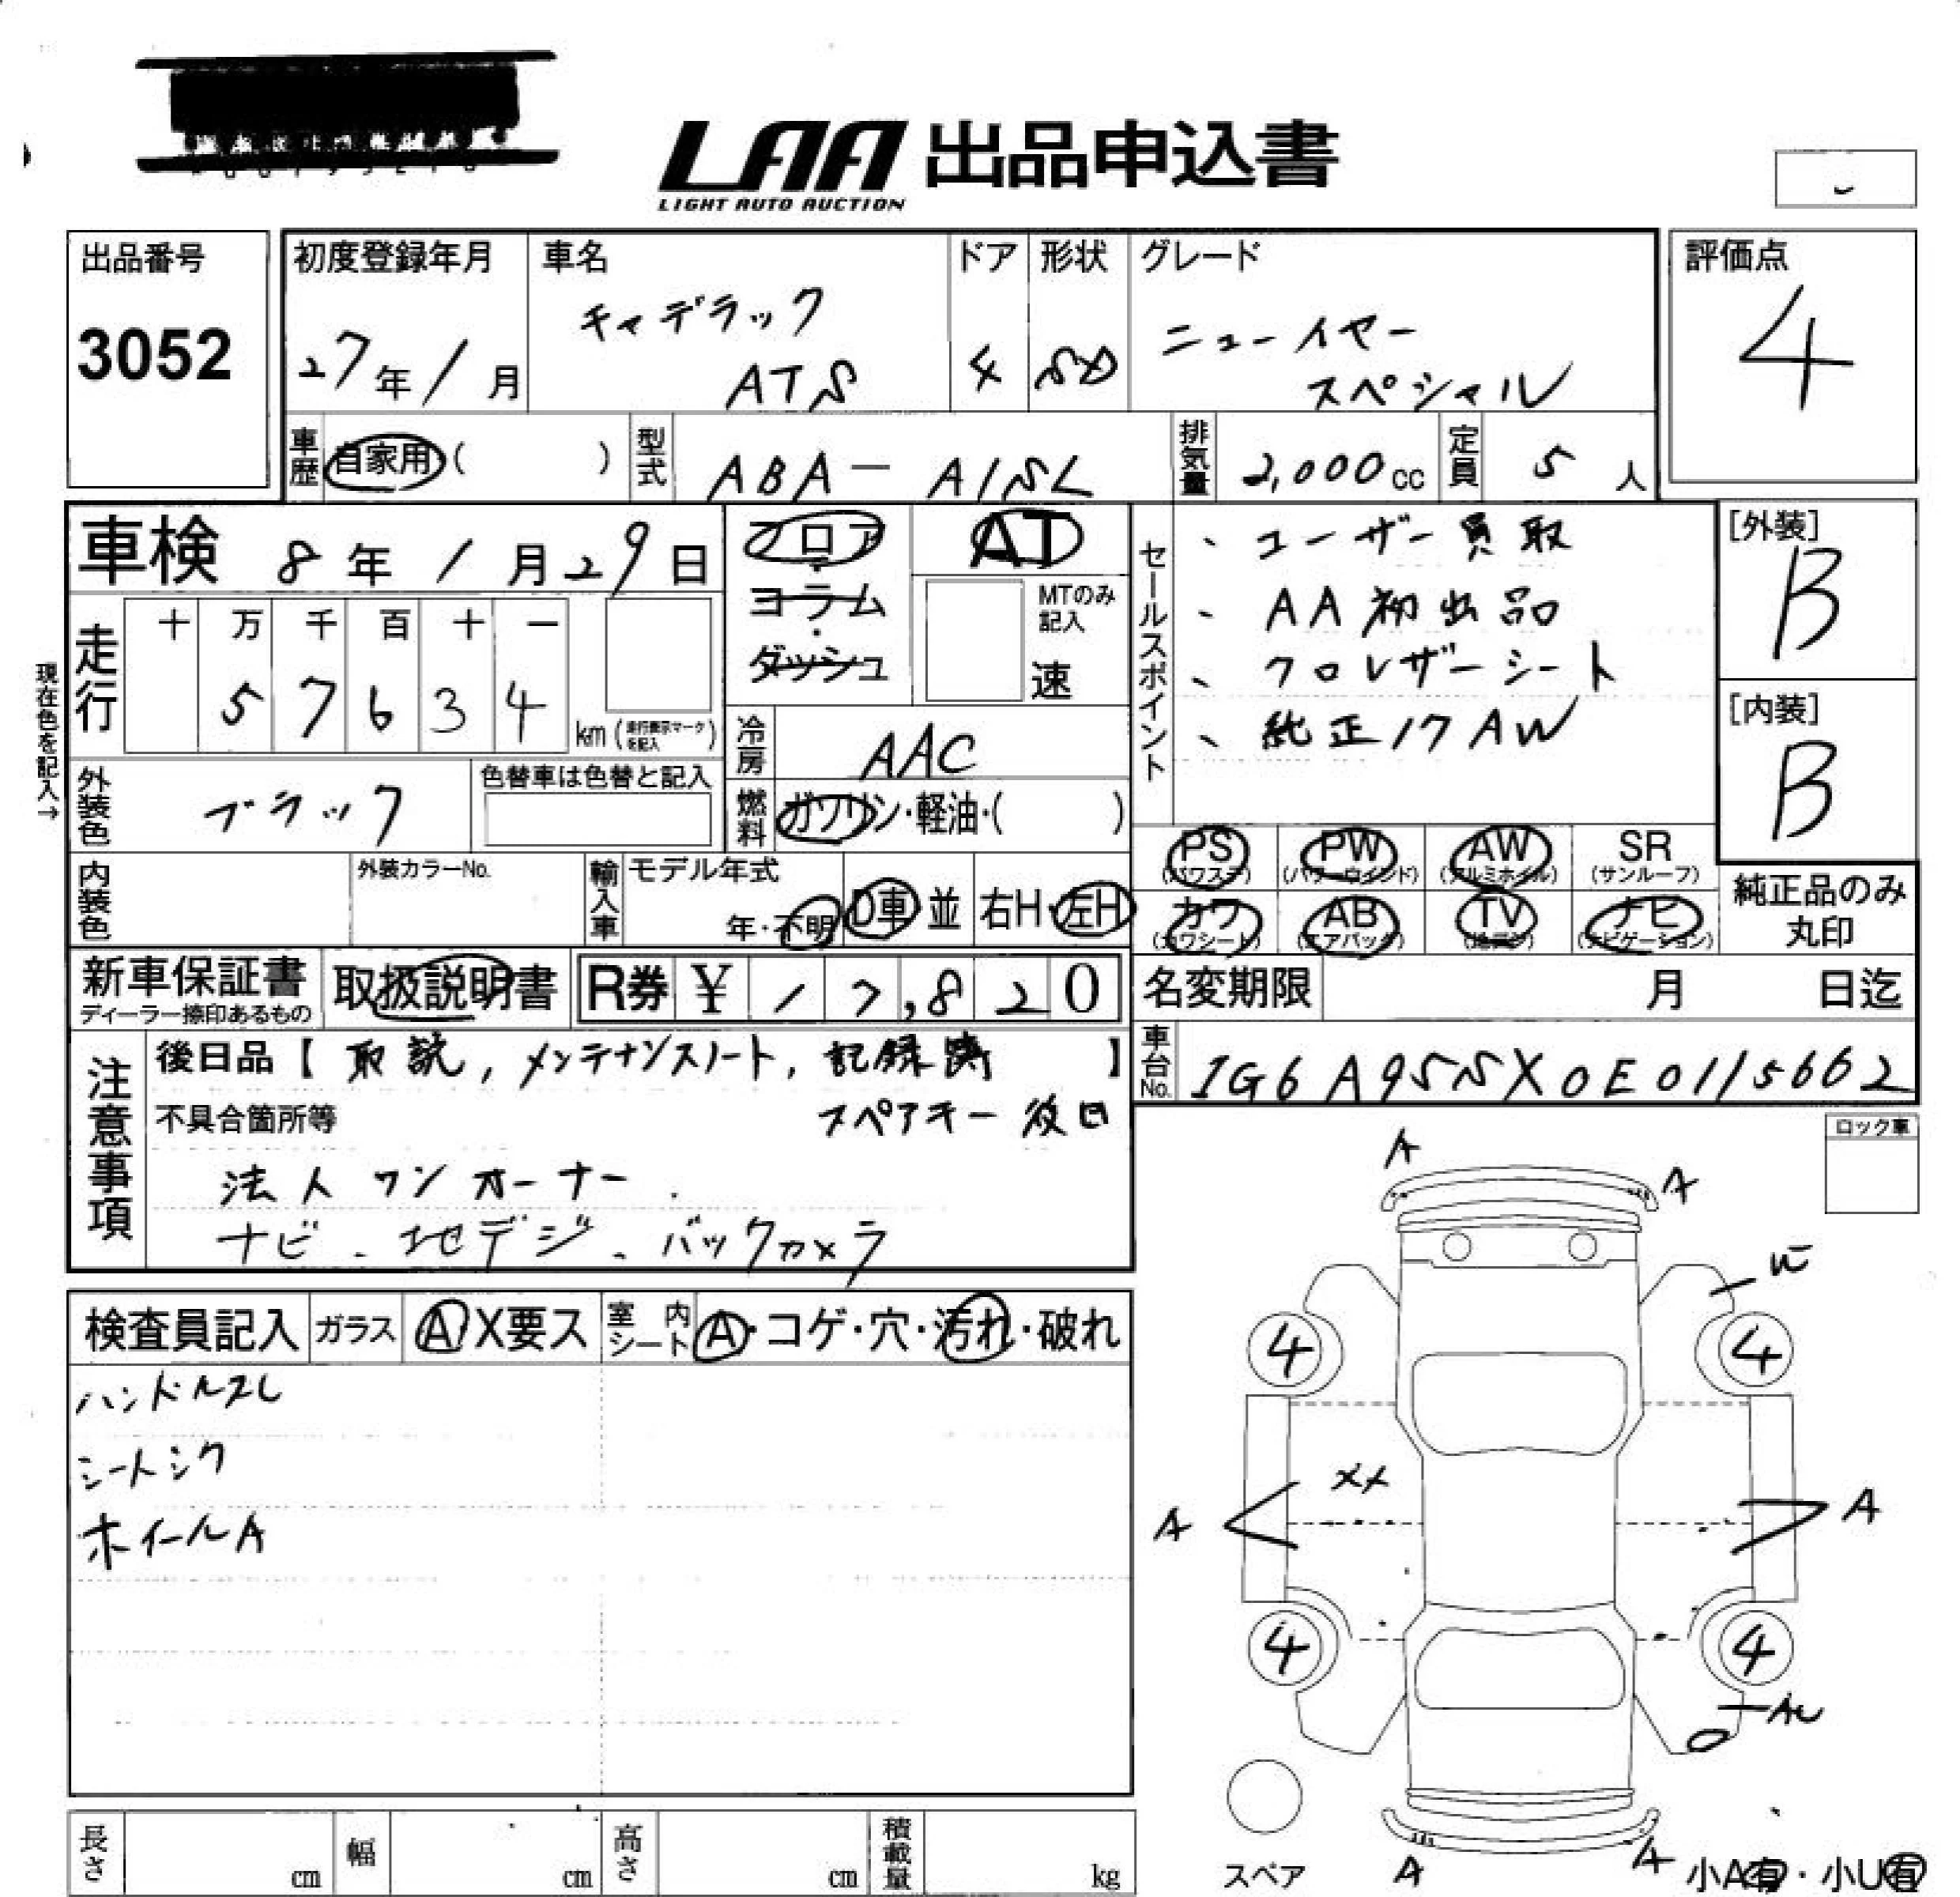 LAA 出品申込書
LIGHT AUTO AUCTION
出品番号
3052
初度登録年月
27年1月
車名
キャデラック
ATS
ドア
4
形状
SD
グレード
ニューイヤー
スペシャル
評価点
4
車歴 自家用 ( )
型式 ABA-A1SL
排気量 2,000cc
定員 5人
車検 8年1月29日
走行
十 万 千 百 十 一
5 7 6 3 4 km (走行表示マークを記入)
現在色を記入→
外装色 ブラック
色替車は色替と記入
内装色
外装カラーNo.
フロア・コラム・ダッシュ
AT
MTのみ記入
速
冷房 AAC
燃料 ガソリン・軽油・( )
輸入車
モデル年式
年・不明
D車・並
右H・左H
セールスポイント
、ユーザー買取
、AA初出品
、クロレザーシート
、純正17AW
[外装]
B
[内装]
B
PS (パワステ)
PW (パワーウインド)
AW (アルミホイル)
SR (サンルーフ)
カワ (カワシート)
AB (エアバック)
TV (地デジ)
ナビ (ナビゲーション)
純正品のみ
丸印
新車保証書
ディーラー捺印あるもの
取扱説明書
R券 ¥ 17,820
名変期限 月 日迄
車台No. 1G6A95SX0E0115662
注意事項
後日品【取説, メンテナンスノート, 記録簿】
スペアキー後日
不具合箇所等
法人ワンオーナー.
ナビ、地デジ、バックカメラ
検査員記入
ガラス A X要ス
室内シート A・コゲ・穴・汚れ・破れ
ハンドルスレ
シートシワ
ホイールA
ロック車
A
A
4
4
XX
A
A
4
4
A
A
スペア
小A有・小U有
長さ cm
幅 cm
高さ cm
積載量 kg